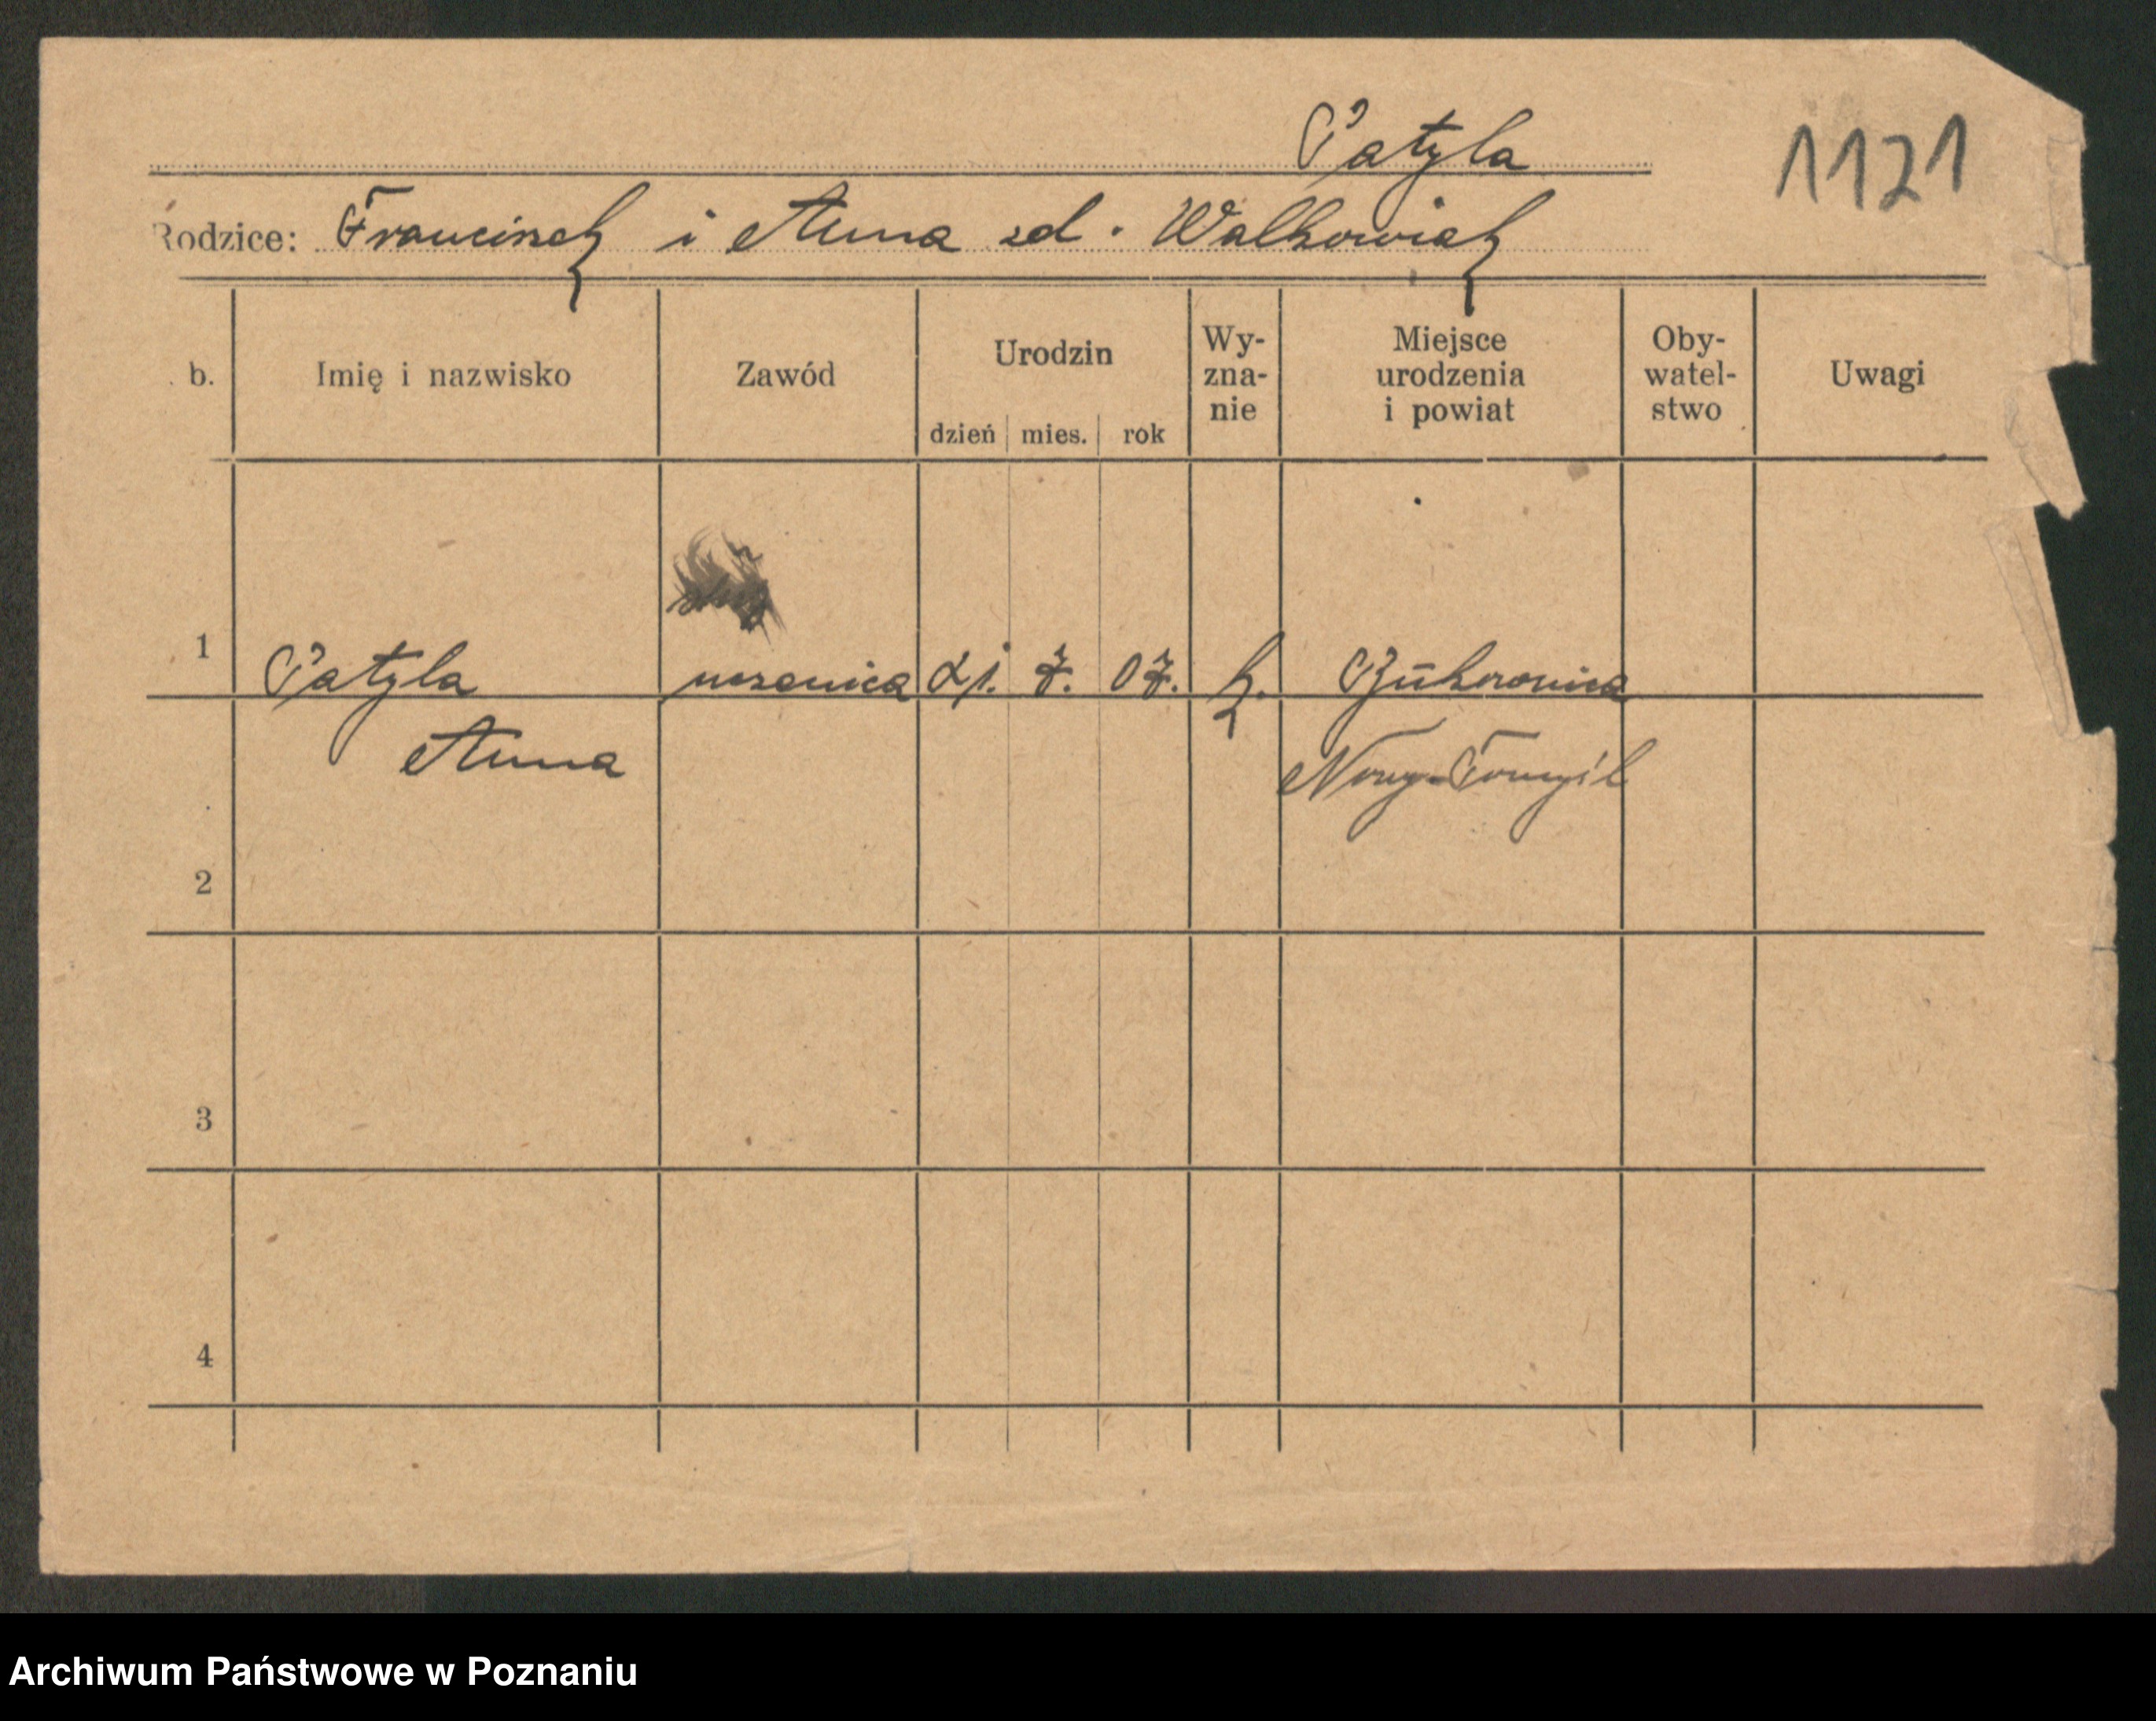 Patyla
1121
Rodzice: Franciszek i Anna zd. Walkowiak
b. Imię i nazwisko Zawód Urodzin dzień mies. rok Wy-zna-nie Miejsce urodzenia i powiat Oby-watel-stwo Uwagi
1 Patyla uczenica 21. 7. 07. k.
Anna Nowy-Tomyśl
2
3
4
Archiwum Państwowe w Poznaniu